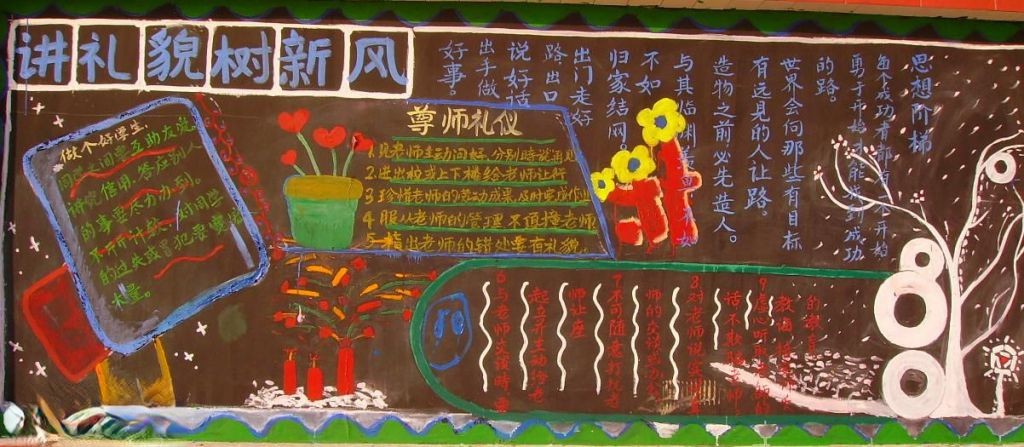 讲礼貌树新风
做个好学生
同学间要互助友爱
讲究信用,答应别人
的事要尽力办到。
不斤斤计较
的过失或冒犯要宽
大量。
尊师礼仪
1.见老师主动问好,分别时说再见
2.进出校或上下楼给老师让行
3.珍惜老师的劳动成果,及时完成作业
4.服从老师的管理不顶撞老师
5.指出老师的错处要有礼貌。
6与老师交谈时要
起立并主动给老
师让座
7不可随意打扰老
师的
8.对老师说
话不欺骗老师
9虚心听
教诲
的
思想阶梯
每个成功者都有一个开始
勇于开始才能找到成功
的路。
世界会向那些有目标
有远见的人让路。
造物之前必先造人。
与其临渊羡鱼
不如
归家结网。
出门走好
路出口
说好话
出手做
好事。